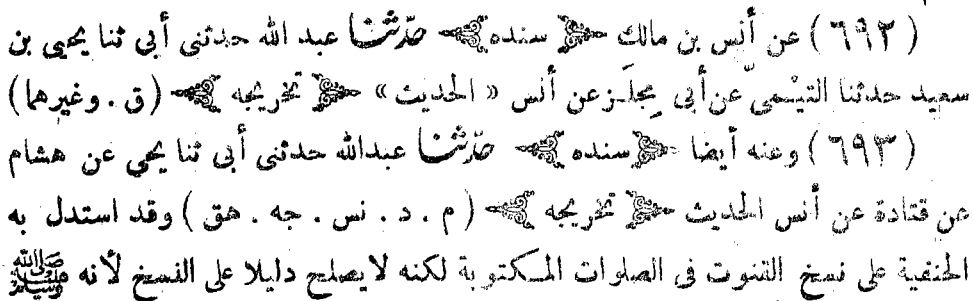 (٦٩٢) عن أنس بن مالك ﴿ سنده ﴾ حدّثنا عبد الله حدثنى أبي ثنا يحيى بن
سعيد حدثنا التيْمىّ عن أبي مِجلَز عن أنس « الحديث » ﴿ تخريجه ﴾ (ق . وغيرهما)
(٦٩٣) وعنه أيضا ﴿ سنده ﴾ حدّثنا عبدالله حدثنى أبي ثنا يحي عن هشام
عن قتادة عن أنس الحديث ﴿ تخريجه ﴾ (م . د . نس . جه . هق) وقد استدل به
الحنفية على نسخ القنوت فى الصلوات المكتوبة لكنه لايصلح دليلا على النسخ لأنه ﷺ